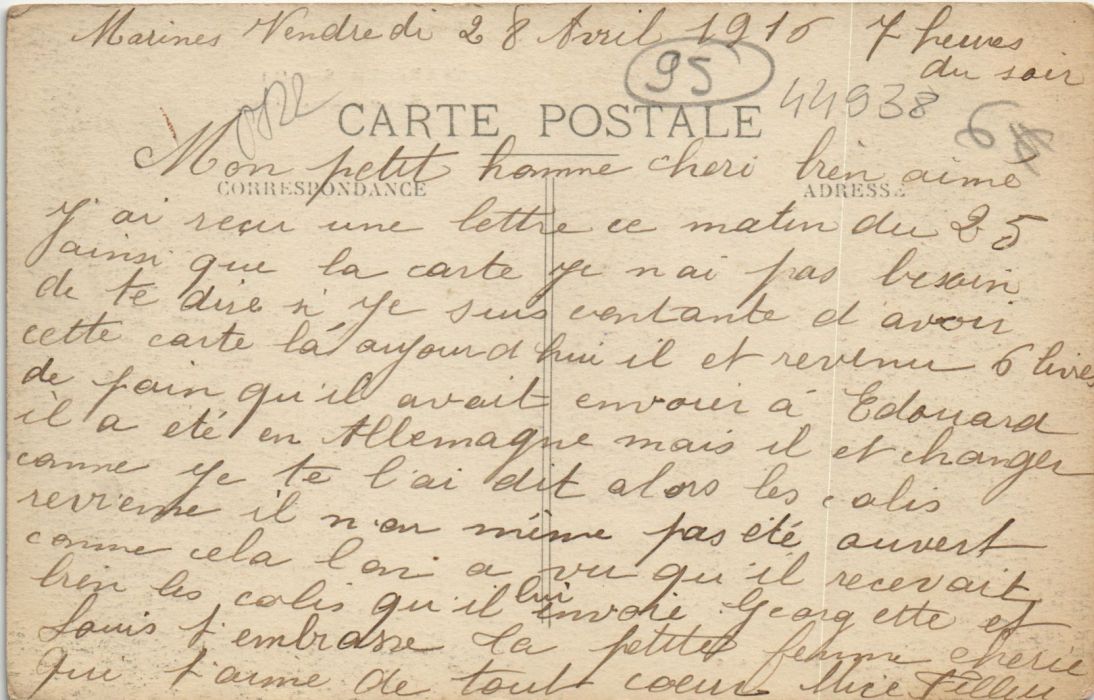 Marines Vendredi 28 Avril 1916 7 heures
du soir
95
44938
CARTE POSTALE
Mon petit homme cheri bien aimé
CORRESPONDANCE
ADRESSE
J'ai reçu une lettre ce matin du 25
ainsi que la carte je n'ai pas besoin
de te dire si je suis contante d'avoir
cette carte là aujourd'hui il et revenu 6 livres
de pain qu'il avait envoier à Edouard
il a été en Allemagne mais il et changer
comme je te l'ai dit alors les colis
revienne il n'on même pas été ouvert
comme cela l'on a vu qu'il recevait
bien les colis qu'il lui envoie Georgette et
Louis t'embrasse ta petite femme cherie
qui t'aime de tout coeur